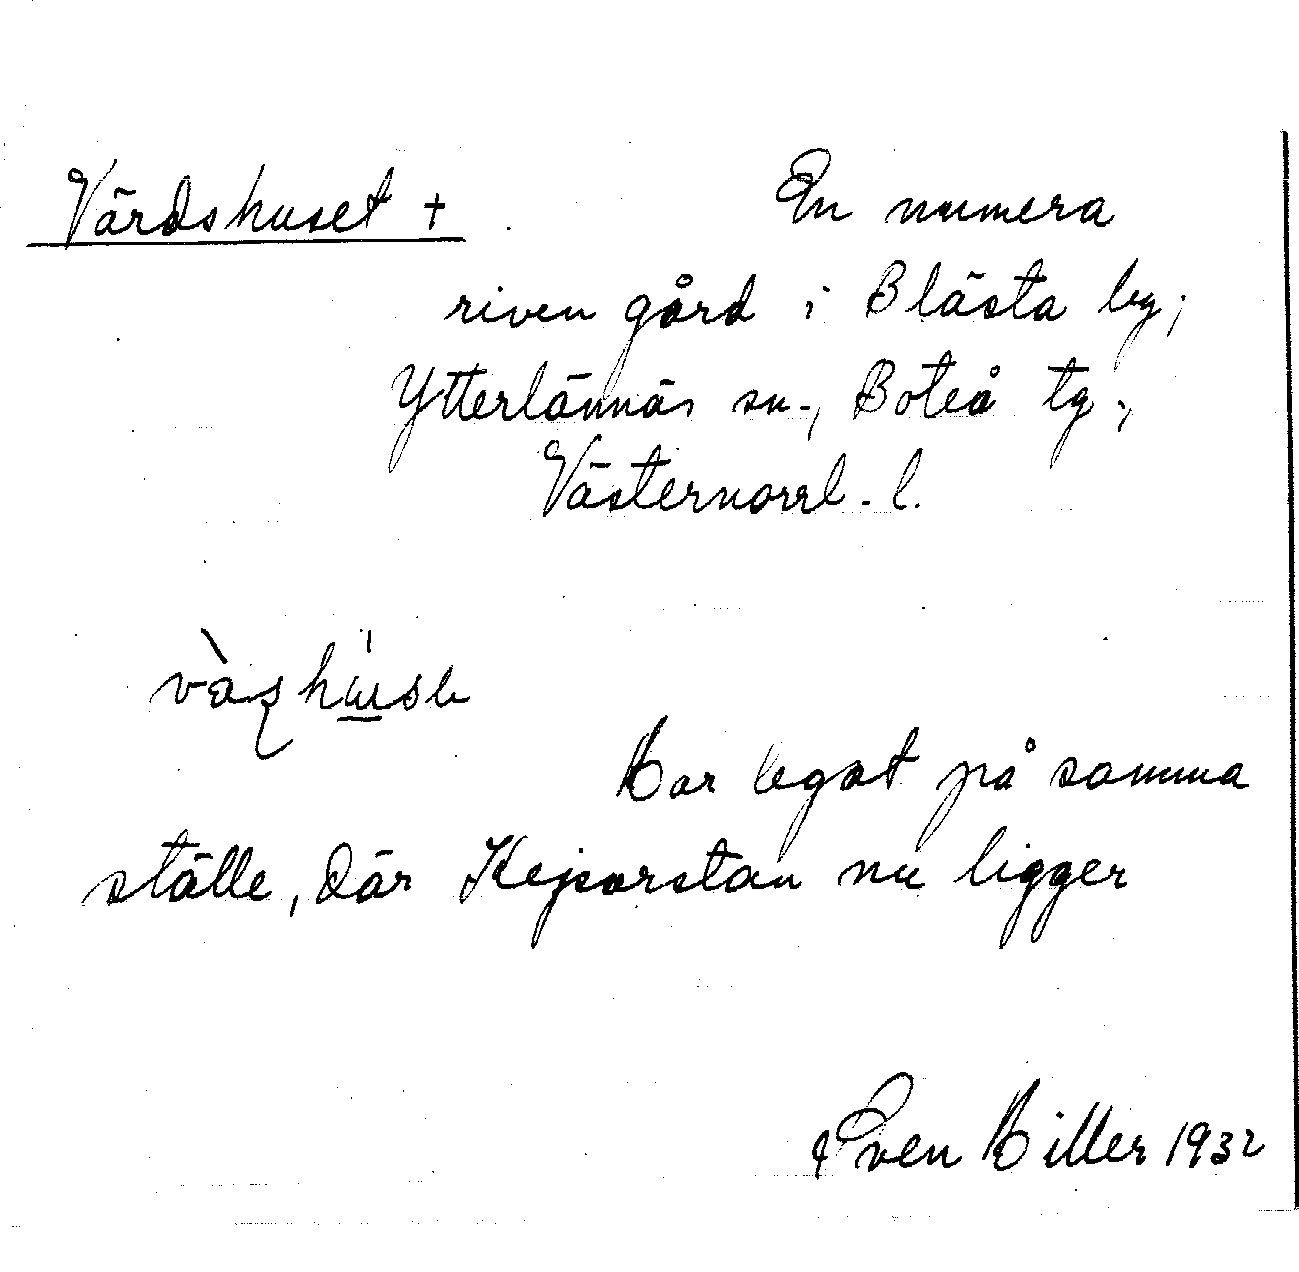 Värdshuset +
En numera
riven gård i Blästa by,
Ytterlännäs sn., Boteå tg.,
Västernorrl. l.
Har legat på samma
ställe, där Kejsarstan nu ligger
Sven Hiller 1932